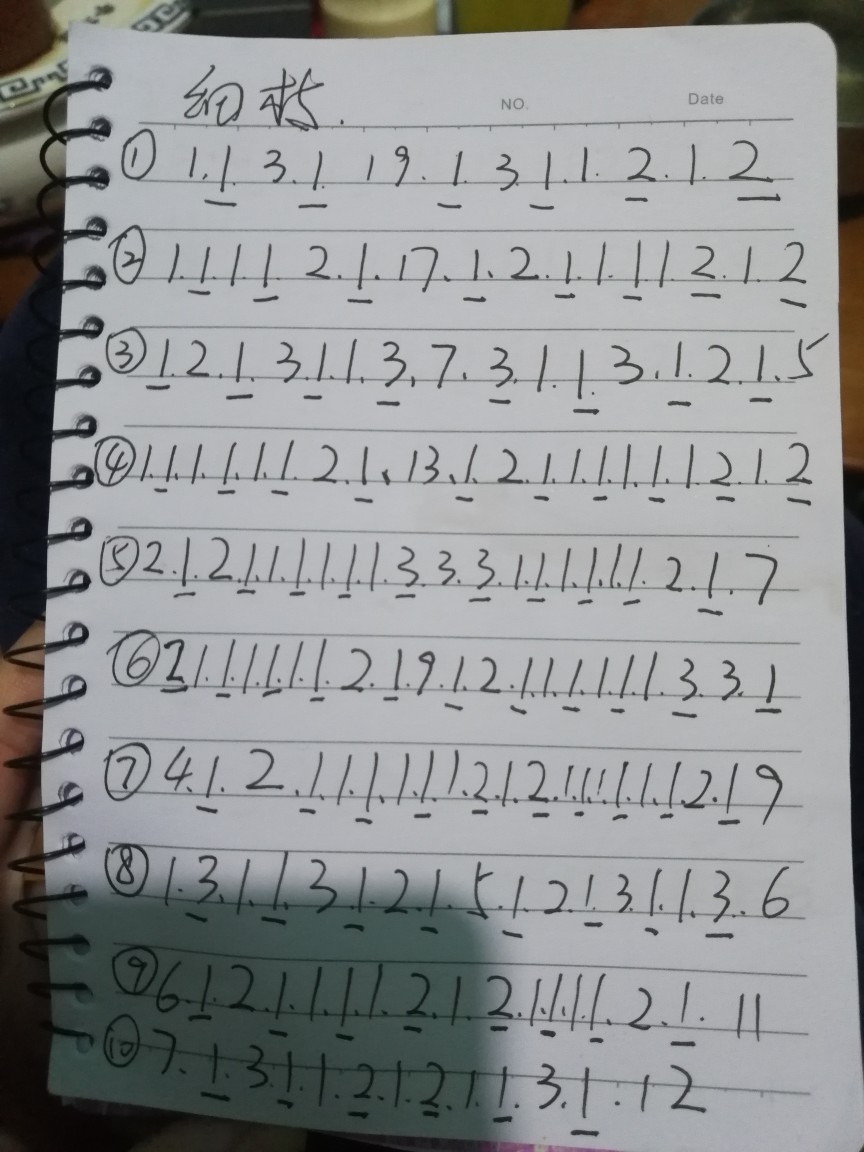 NO. Date
① 1.1 3.1 19.1 3.1.1.2.1.2
② 1.1.1.1 2.1.17.1.2.1.1.1.1 2.1.2
③ 1.2.1.3.1.1.3.7.3.1.1.3.1.2.1.5
④ 1.1.1.1.1.1.2.1.13.1.2.1.1.1.1.1.1.2.1.2
⑤ 2.1.2.1.1.1.1.1.1.3.3.3.1.1.1.1.1.1.2.1.7
⑥ 2 1.1.1.1.1.1.2.1.9.1.2.1.1.1.1.1.1.3.3.1
⑦ 4.1.2.1.1.1.1.1.1.2.1.2.1.1.1.1.1.1.2.1 9
⑧ 1.3.1.1.3.1.2.1.5.1.2.1.3.1.1.3.6
⑨ 6.1.2.1.1.1.1.2.1.2.1.1.1.1.2.1.11
⑩ 7.1.3.1.1.2.1.2.1.1.3.1.12